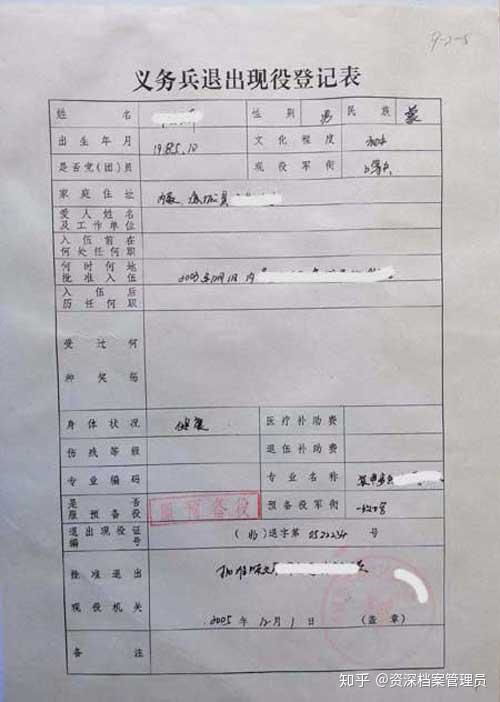 9-2-5
义务兵退出现役登记表
姓 名 性 别 男 民 族 蒙
出生年月 1985.10 文化程度 初中
是否党(团)员 现役军衔
家庭住址 内蒙
爱人姓名及工作单位
入伍前在何处任何职
何时何地批准入伍 2003年12月1日 内
入伍后历任何职
受过何种奖惩
身体状况 健康 医疗补助费
伤残等级 退伍补助费
专业编码 专业名称
是否服预备役 服预备役 预备役军衔
退出现役证编号 退字第 0522234 号
批准退出现役机关
2005 年 12 月 1 日 (盖章)
备 注
知乎 @资深档案管理员